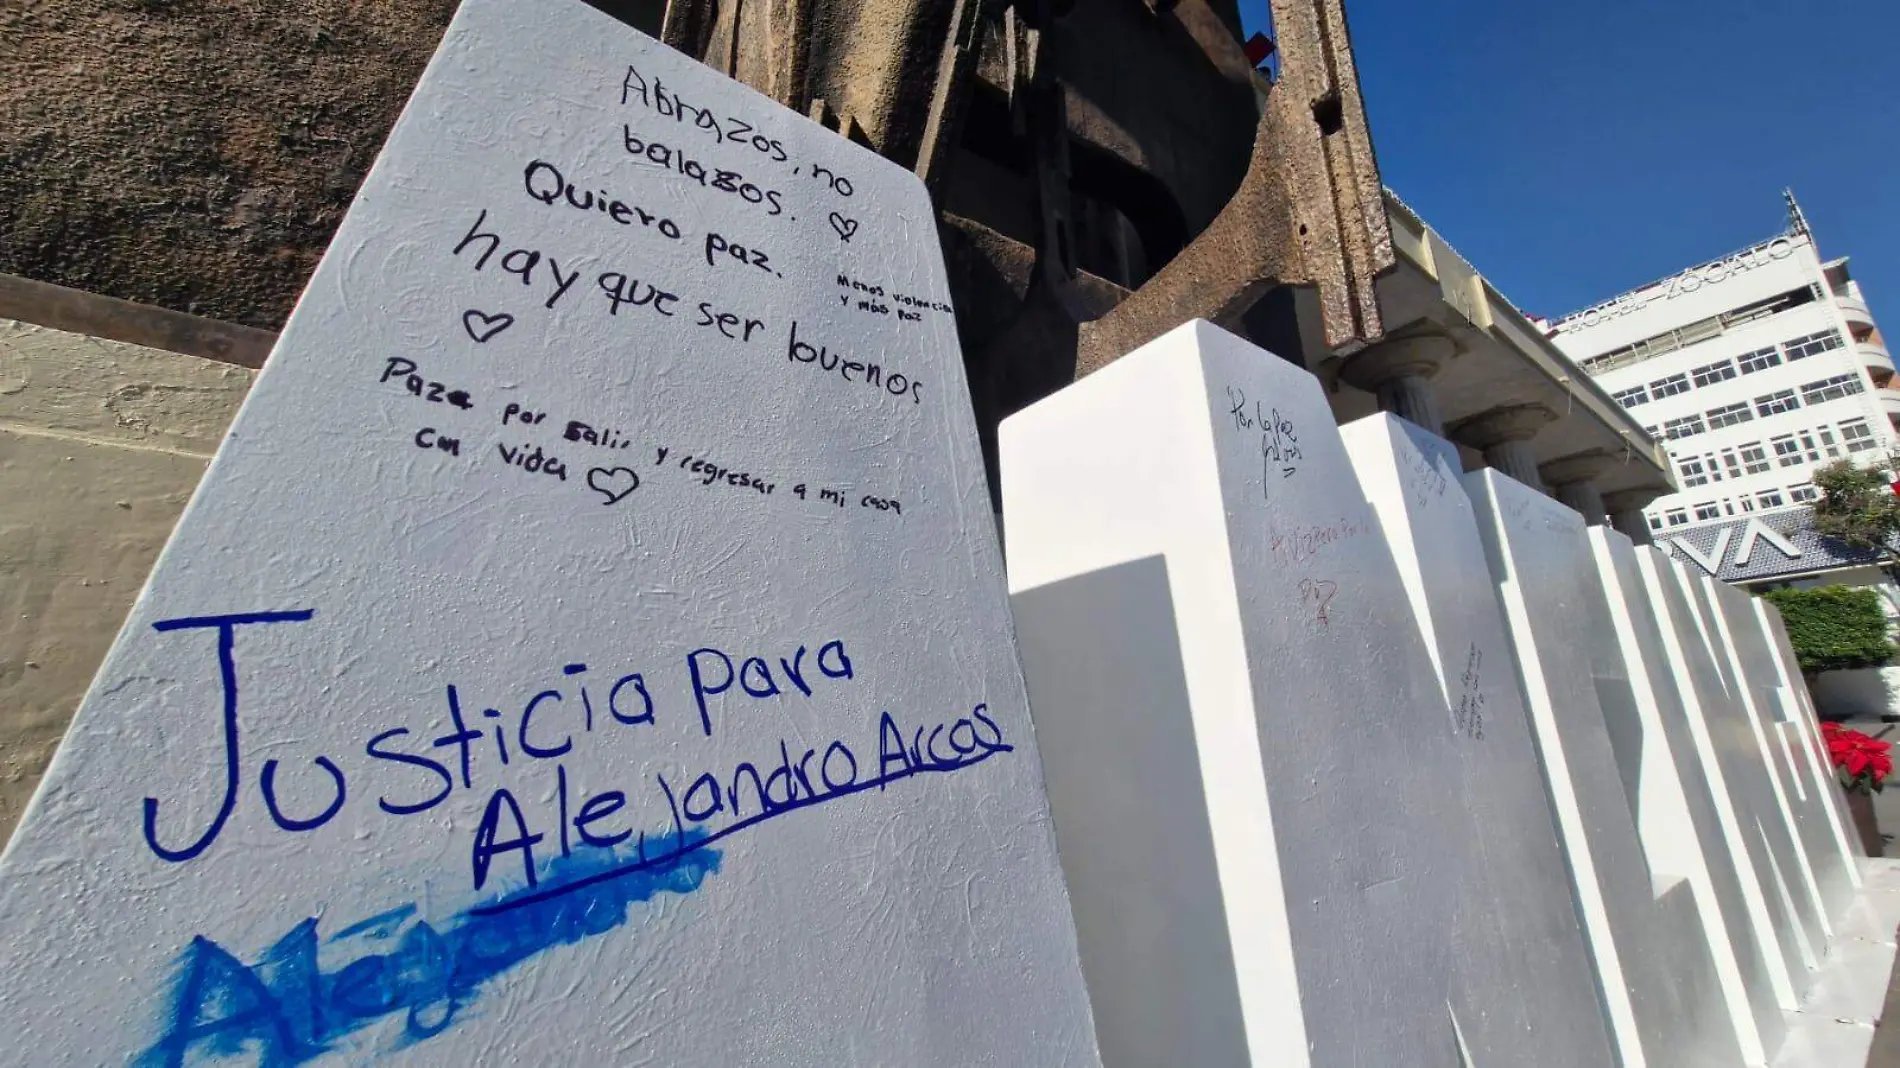 Abrazos, no
balazos.
Quiero paz.
Menos violencia
y más paz
hay que ser buenos
Paz por salir y regresar a mi casa
con vida
Justicia para
Alejandro Arcos
Por la paz
HOTEL ZÓCALO